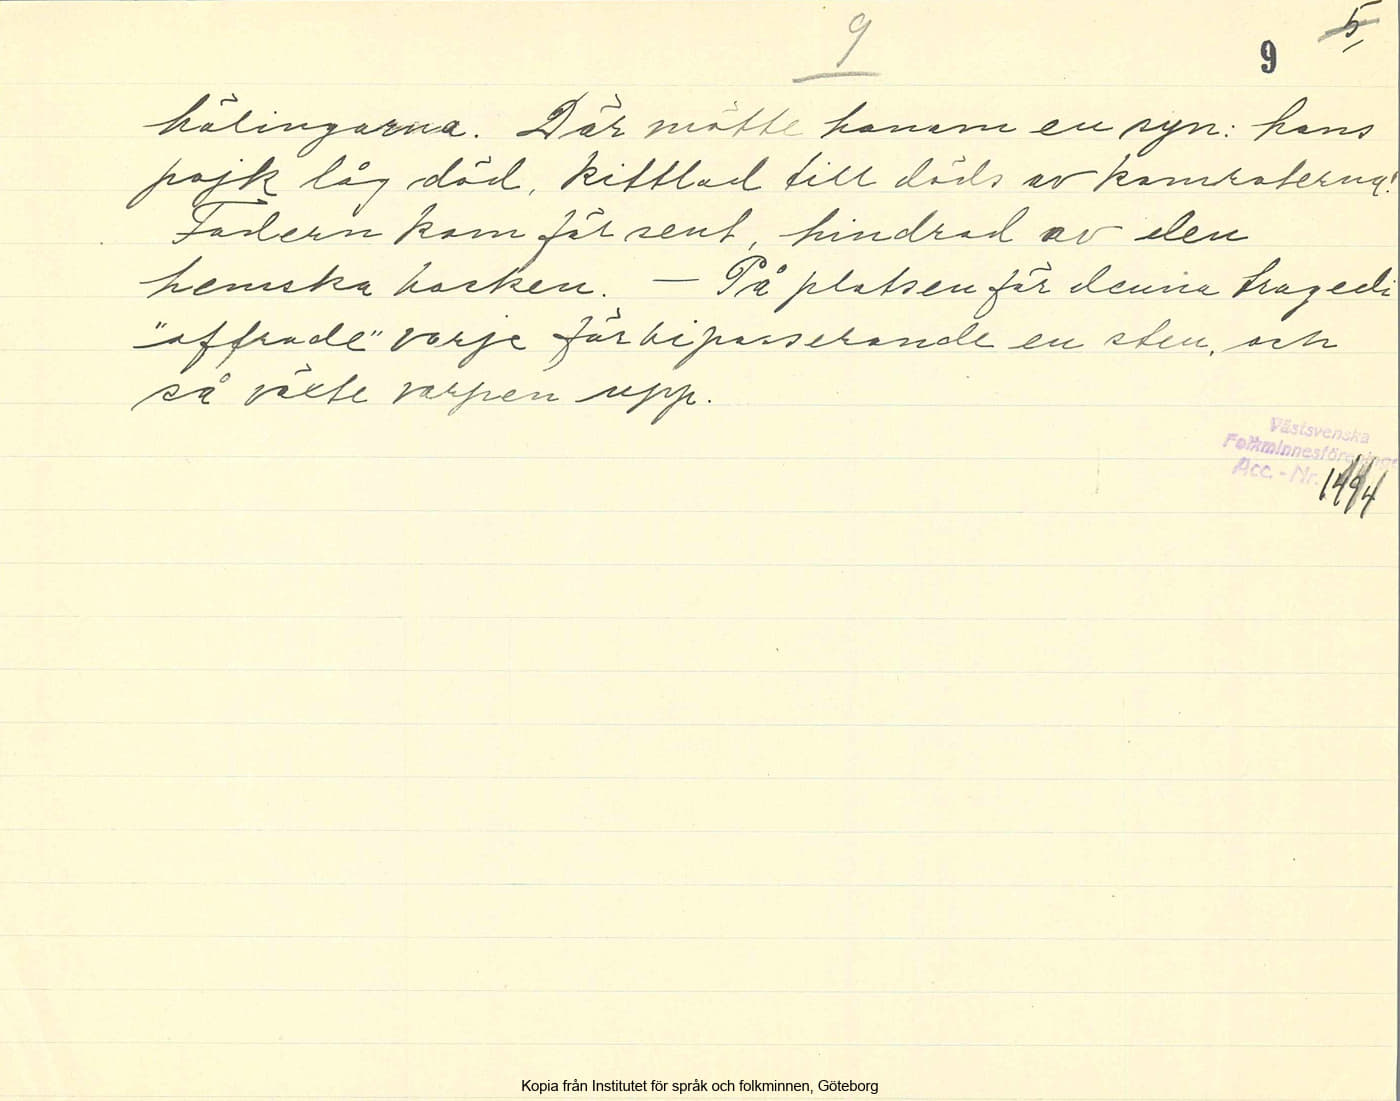 9
9
5,
hälingarna. Där mötte honom en syn: hans
pojk låg död, kittlad till döds av kamraterna!
Fadern kom för sent, hindrad av den
hemska bocken. — På platsen för denna tragedi
"offrade" varje förbipasserande en sten, och
så växte varpen upp.
Västsvenska
Folkminnesföreninge
Acc. - Nr. 1494
Kopia från Institutet för språk och folkminnen, Göteborg